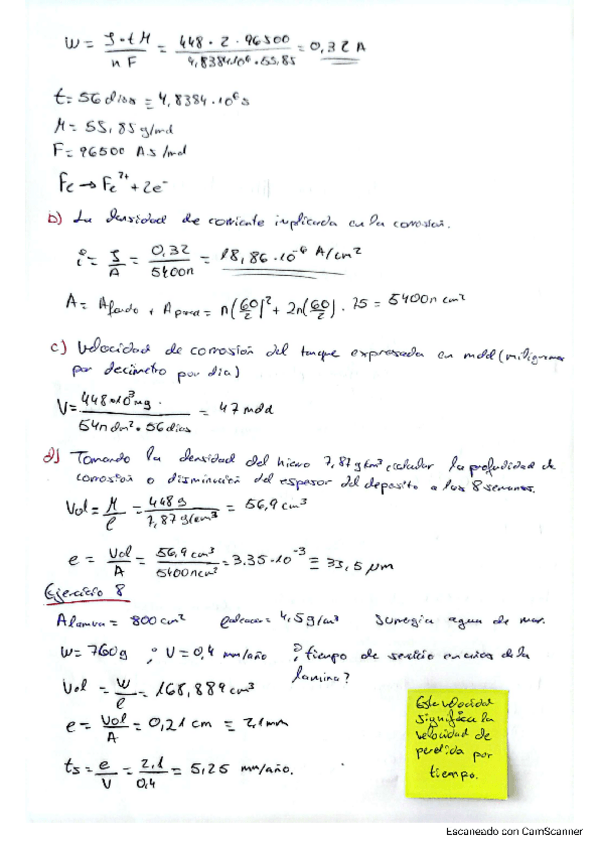 W = I·t M / n F = 448 · 2 · 96500 / 4,8384·10⁶ · 55,85 = 0,32 A
t = 56 dias = 4,8384·10⁶ s
M = 55,85 g/mol
F = 96500 A.s/mol
Fe → Fe²⁺ + 2e⁻
b) La densidad de corriente implicada en la corrosión.
i = I/A = 0,32 / 5400π = 18,86 · 10⁻⁶ A/cm²
A = Afondo + Apared = π(60/2)² + 2π(60/2) · 75 = 5400π cm²
c) Velocidad de corrosión del tanque expresada en mdd (miligramos
por decímetro por dia)
V = 448·10³ mg / 54π dm² · 56 dias = 47 mdd
d) Tomando la densidad del hierro 7,87 g/cm³ calcular la profundidad de
corrosión o disminución del espesor del deposito a las 8 semanas.
Vol = M/ρ = 448 g / 7,87 g/cm³ = 56,9 cm³
e = Vol/A = 56,9 cm³ / 5400π cm² = 3.35 · 10⁻³ ≡ 33,5 μm
Ejercicio 8
Alamina = 800 cm² ρacero = 4,5 g/cm³ Sumergia agua de mar.
W = 760 g ; V = 0,4 mm/año ¿tiempo de servicio en años de la
lamina?
Vol = W/ρ = 168,889 cm³
e = Vol/A = 0,21 cm = 2,1 mm
ts = e/V = 2,1 / 0,4 = 5,25 mm/año.
Esta velocidad
significa la
velocidad de
perdida por
tiempo.
Escaneado con CamScanner